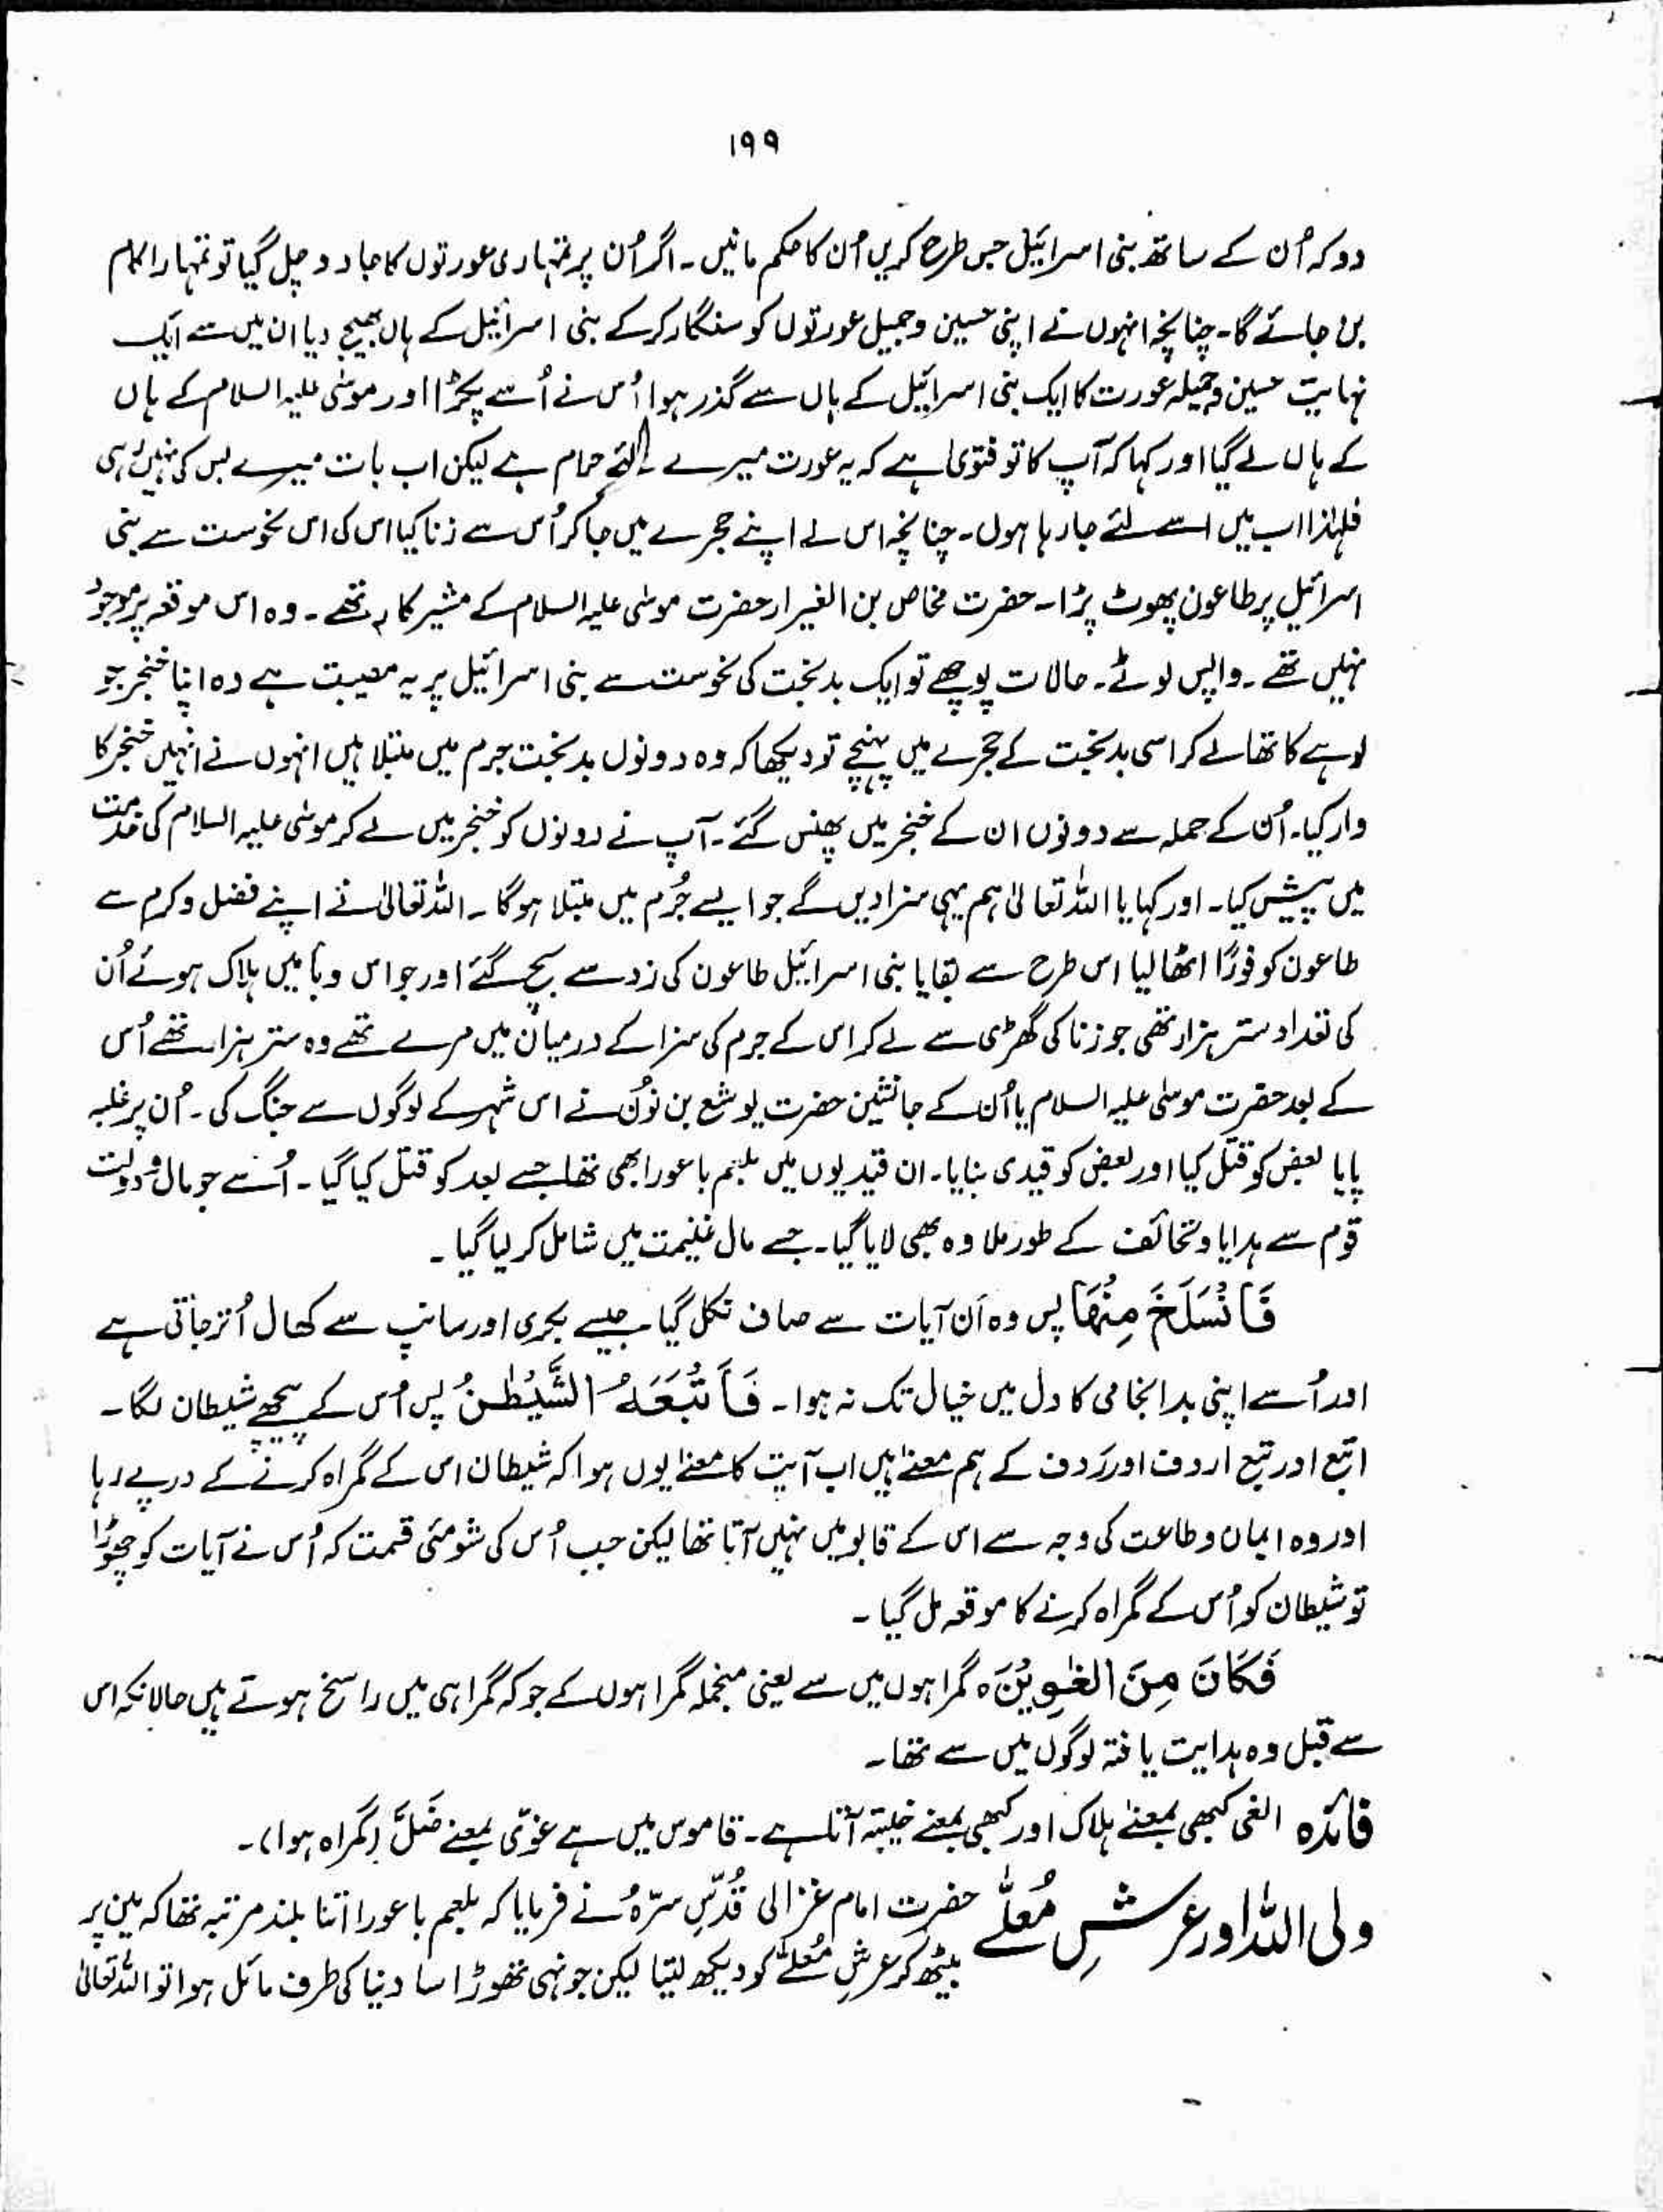 ۱۹۹
دو کہ اُن کے ساتھ بنی اسرائیل جس طرح کریں اُن کا حکم مانیں۔ اگر اُن پر تمہاری عورتوں کا جادو چل گیا تو تمہارا کام
بن جائے گا۔ چنانچہ انہوں نے اپنی حسین و جمیل عورتوں کو سنگار کرکے بنی اسرائیل کے ہاں بھیج دیا ان میں سے ایک
نہایت حسین و جمیلہ عورت کا ایک بنی اسرائیل کے ہاں سے گذر ہوا اُس نے اُسے پکڑا اور موسٰی علیہ السلام کے ہاں
کے ہاں لے گیا اور کہا کہ آپ کا تو فتویٰ ہے کہ یہ عورت میرے لئے حرام ہے لیکن اب بات میرے بس کی نہیں رہی
فلہٰذا اب میں اسے لئے جا رہا ہوں۔ چنانچہ اس نے اپنے حجرے میں جا کر اُس سے زنا کیا اس کی اس نحوست سے بنی
اسرائیل پر طاعون پھوٹ پڑا۔ حضرت فخاص بن الغیرار حضرت موسٰی علیہ السلام کے مشیر کار تھے۔ وہ اس موقعہ پر موجود
نہیں تھے۔ واپس لوٹے۔ حالات پوچھے تو ایک بدبخت کی نحوست سے بنی اسرائیل پر یہ مصیبت ہے وہ اپنا خنجر جو
لوہے کا تھا لے کر اسی بدبخت کے حجرے میں پہنچے تو دیکھا کہ وہ دونوں بدبخت جرم میں مبتلا ہیں انہوں نے انہیں خنجر کا
وار کیا۔ اُن کے حملہ سے دونوں ان کے خنجر میں پھنس گئے۔ آپ نے دونوں کو خنجر میں لے کر موسٰی علیہ السلام کی خدمت
میں پیش کیا۔ اور کہا یا اللہ تعالیٰ ہم یہی سزا دیں گے جو ایسے جُرم میں مبتلا ہوگا۔ اللہ تعالیٰ نے اپنے فضل و کرم سے
طاعون کو فورًا اٹھا لیا اس طرح سے بقایا بنی اسرائیل طاعون کی زد سے بچ گئے اور جو اس وبا میں ہلاک ہوئے اُن
کی تعداد ستر ہزار تھی جو زنا کی گھڑی سے لے کر اس کے جرم کی سزا کے درمیان میں مرے تھے وہ ستر ہزار تھے اُس
کے بعد حضرت موسٰی علیہ السلام یا اُن کے جانشین حضرت یوشع بن نُون نے اس شہر کے لوگوں سے جنگ کی۔ اُن پر غلبہ
پایا بعض کو قتل کیا اور بعض کو قیدی بنایا۔ ان قیدیوں میں بلعم باعورا بھی تھا جسے بعد کو قتل کیا گیا۔ اُسے جو مال و دولت
قوم سے ہدایا و تحائف کے طور ملا وہ بھی لایا گیا۔ جسے مال غنیمت میں شامل کر لیا گیا۔
فَانْسَلَخَ مِنْهَا پس وہ اُن آیات سے صاف نکل گیا جیسے بکری اور سانپ سے کھال اُتر جاتی ہے
اور اُسے اپنی بد انجامی کا دل میں خیال تک نہ ہوا۔ فَاَتْبَعَهُ الشَّيْطٰنُ پس اُس کے پیچھے شیطان لگا۔
اتبع اور تبع اردف اور رَدف کے ہم معنےٰ ہیں اب آیت کا معنےٰ یوں ہوا کہ شیطان اس کے گمراہ کرنے کے درپے رہا
اور وہ ایمان و طاعت کی وجہ سے اس کے قابو میں نہیں آتا تھا لیکن جب اُس کی شومئی قسمت کہ اُس نے آیات کو چھوڑا
تو شیطان کو اُس کے گمراہ کرنے کا موقعہ مل گیا۔
فَكَانَ مِنَ الْغٰوِيْنَ ہ گمراہوں میں سے یعنی منجملہ گمراہوں کے جو کہ گمراہی میں راسخ ہوتے ہیں حالانکہ اس
سے قبل وہ ہدایت یافتہ لوگوں میں سے تھا۔
فائدہ الغی کبھی بمعنےٰ ہلاک اور کبھی بمعنے خیبتہ آتا ہے۔ قاموس میں ہے غوٰی بمعنے ضَلَّ (گمراہ ہوا)۔
ولی اللہ اور عرشِ مُعلّٰے حضرت امام غزالی قُدّس سرّہُ نے فرمایا کہ بلعم باعورا اتنا بلند مرتبہ تھا کہ زمین پر
بیٹھ کر عرشِ مُعلّٰے کو دیکھ لیتا لیکن جونہی تھوڑا سا دنیا کی طرف مائل ہوا تو اللہ تعالیٰ